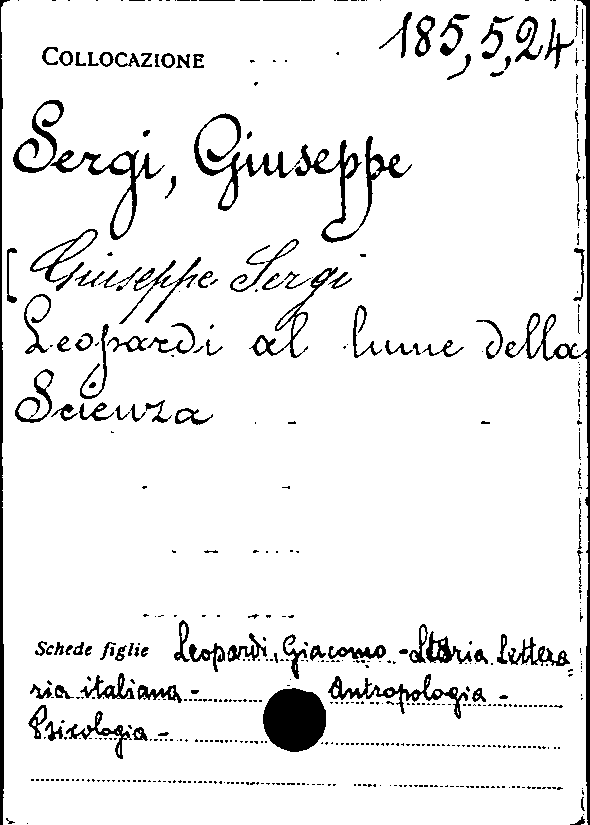 COLLOCAZIONE 185,5,24
Sergi, Giuseppe
[Giuseppe Sergi]
Leopardi al lume della
Scienza
Schede figlie Leopardi, Giacomo - Storia Lettera=
ria italiana - Antropologia -
Psicologia -